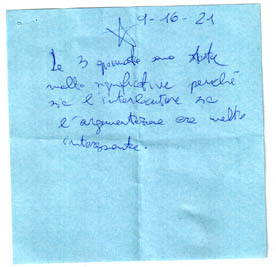 9-16-21
Le 3 giornate sono state
molto significative perché
sia l'interlocutore sia
l'argomentazione era molto
interessante.